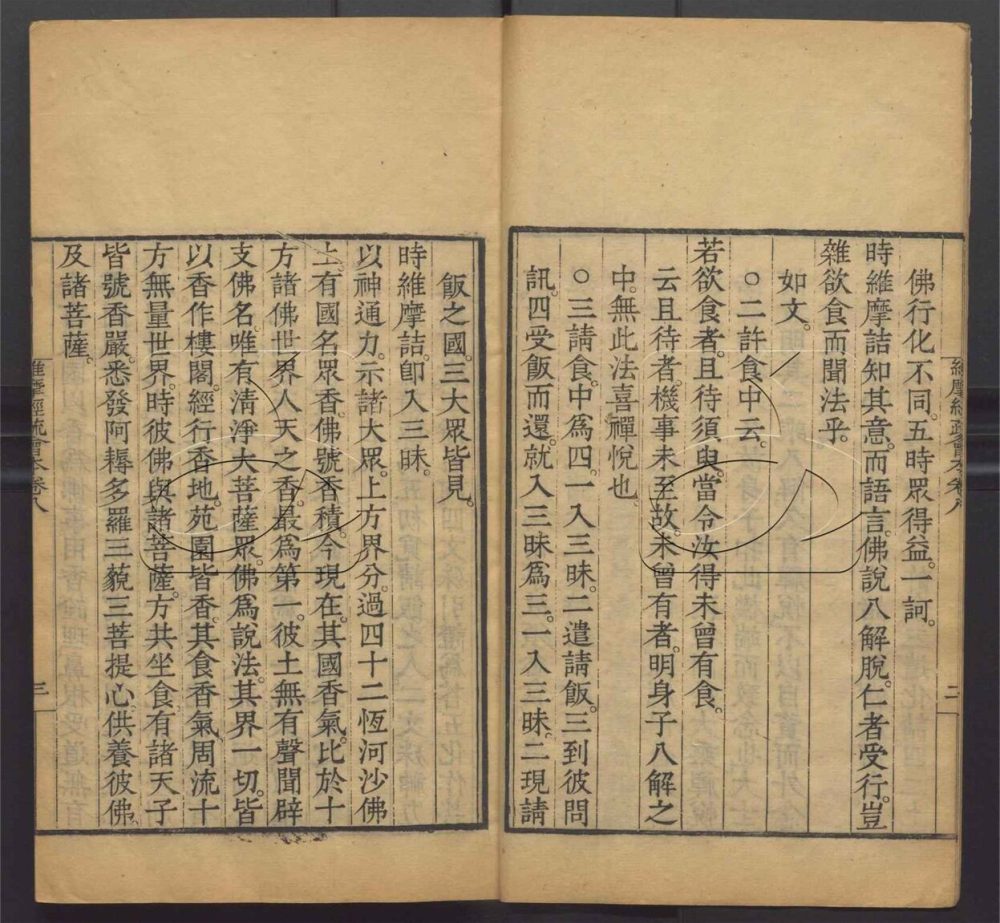 佛行化不同。五時眾得益。一訶。
時維摩詰知其意。而語言。佛說八解脫。仁者受行。豈
雜欲食而聞法乎。
如文。
○二許食中云。
若欲食者。且待須臾。當令汝得未曾有食。
云且待者。機事未至故。未曾有者。明身子八解之
中。無此法喜禪悅也。
○三請食。中為四。一入三昧。二遣請飯。三到彼問
訊。四受飯而還。就入三昧為三。一入三昧。二現請
維摩經疏會本卷八
二
飯之國。三大眾皆見。
時維摩詰。卽入三昧。
以神通力。示諸大眾。上方界分。過四十二恆河沙佛
土。有國名眾香。佛號香積。今現在。其國香氣。比於十
方諸佛世界人天之香。最為第一。彼土無有聲聞辟
支佛名。唯有淸淨大菩薩眾。佛為說法。其界一切。皆
以香作樓閣。經行香地。苑園皆香。其食香氣。周流十
方無量世界。時彼佛與諸菩薩。方共坐食。有諸天子
皆號香嚴。悉發阿耨多羅三藐三菩提心。供養彼佛。
及諸菩薩。
維摩經疏會本卷八
三